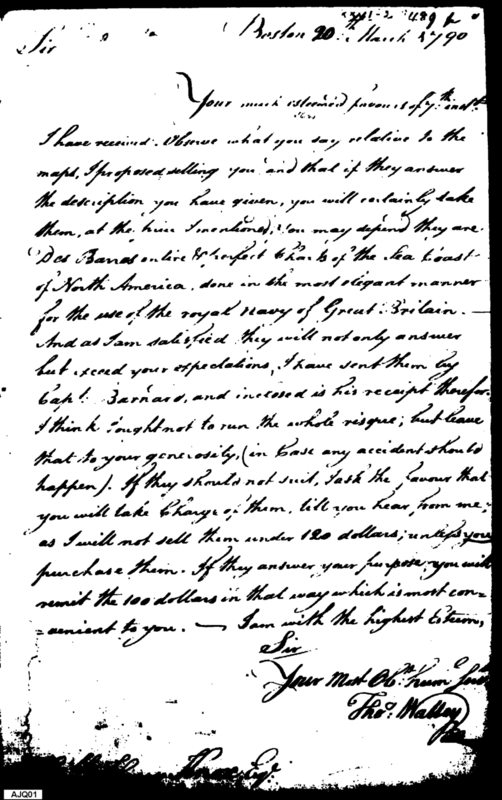 Boston 20th March 1790
Sir
Your much esteemed favours of 7th inst.
I have received. Observe what you say relative to the
maps, I proposed selling you and that if they answer
the description you have given, you will certainly take
them, at the price I mentioned, you may depend they are
Des Barras entire & perfect Charts of the Sea Coast
of North America, done in the most elegant manner
for the use of the royal navy of Great Britain. —
And as I am satisfied they will not only answer
but exceed your expectations, I have sent them by
Capt. Barnard, and inclosed is his receipt therefor.
I think I ought not to run the whole risque; but leave
that to your generosity, (in Case any accident should
happen). If they should not suit, I ask the favour that
you will take Charge of them, till you hear from me,
as I will not sell them under 120 dollars; unless you
purchase them. If they answer your purpose you will
remit the 100 dollars in that way which is most con=
=venient to you. — I am with the highest Esteem,
Sir
Your Most Obt. hum
Thos. Walley
Knox Esq.
AJQ01